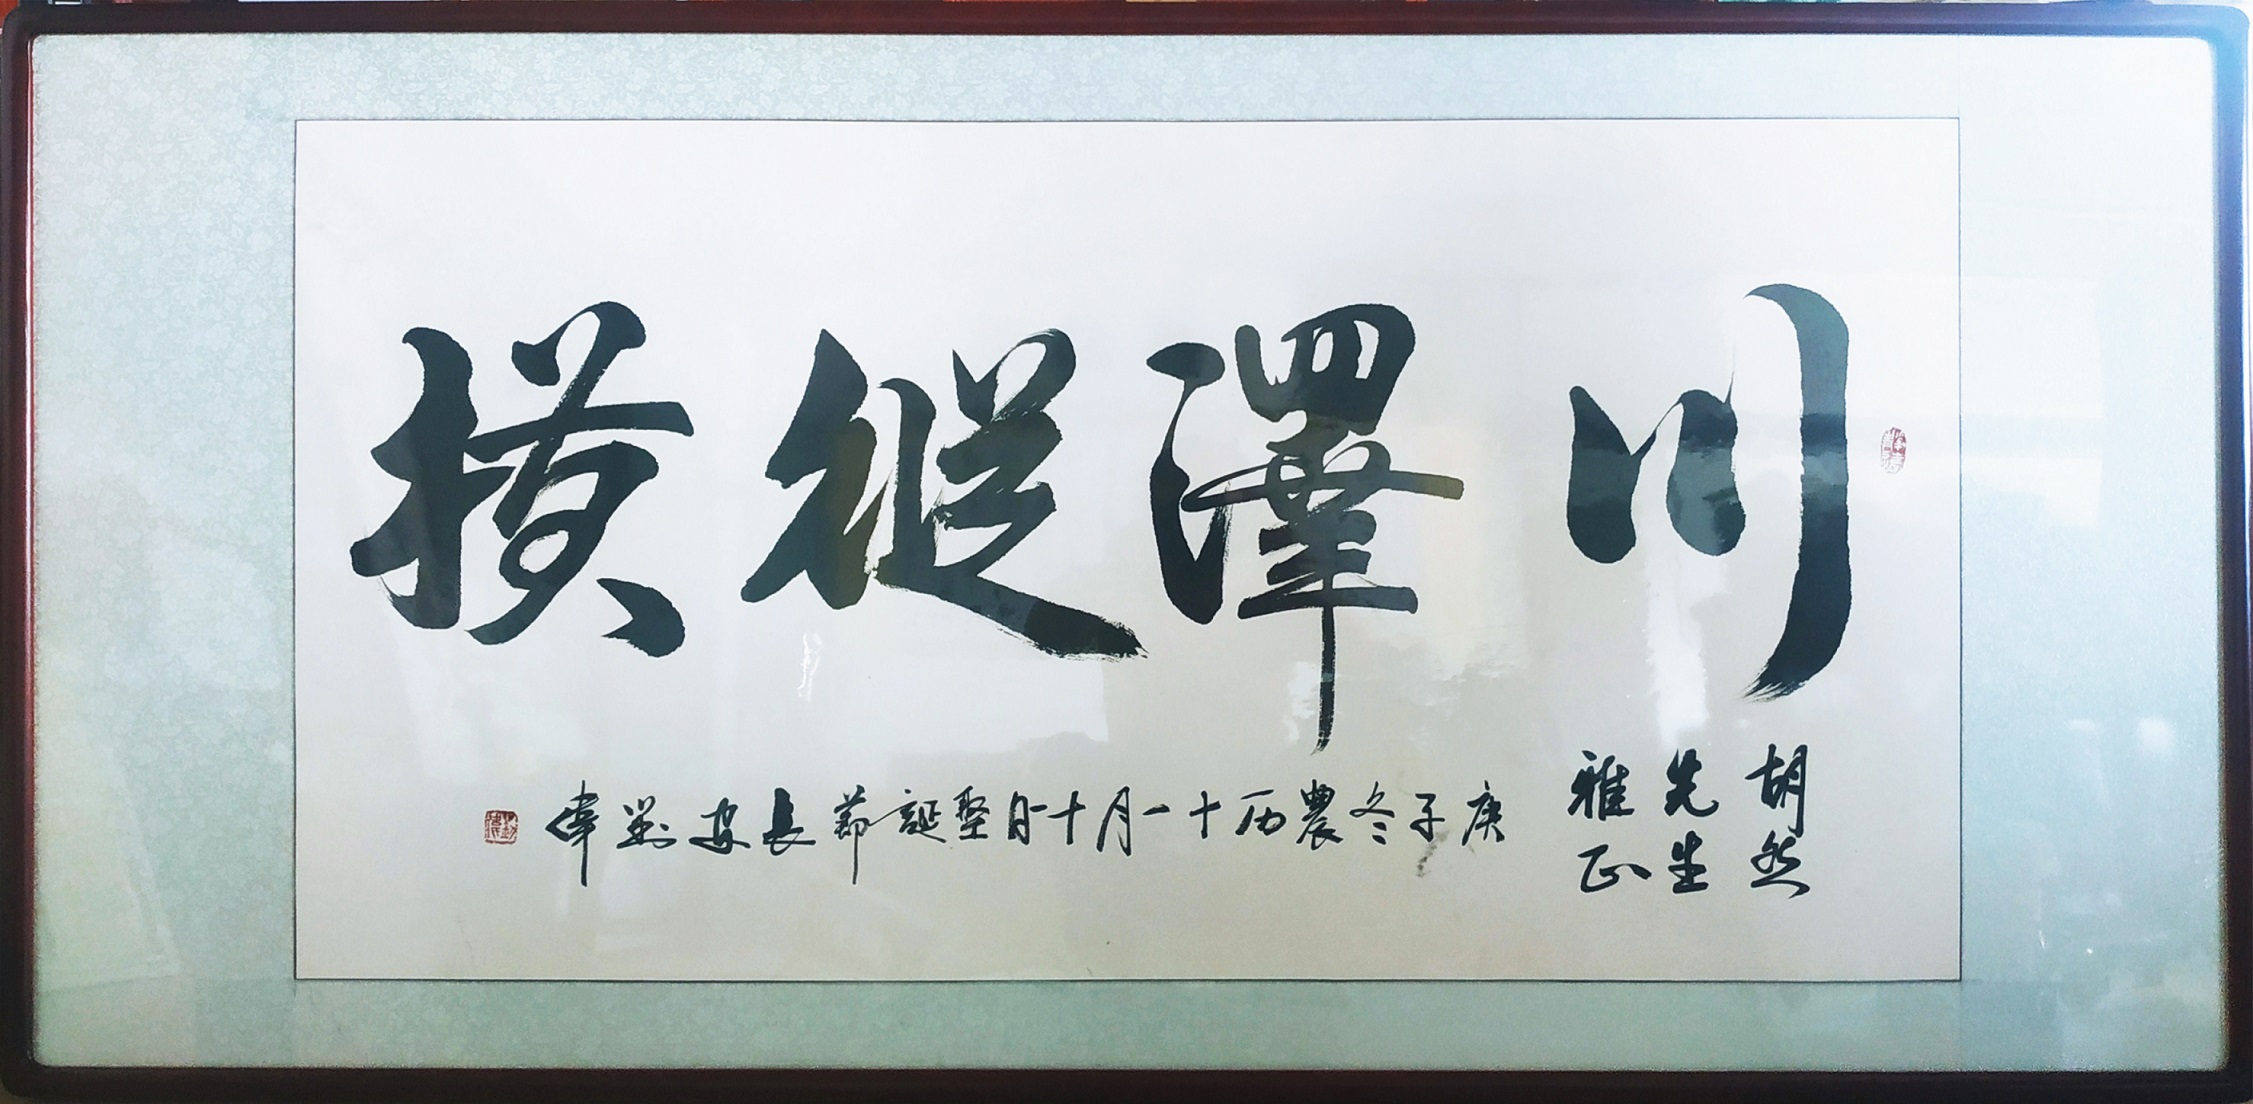 川澤縱橫
胡然
先生
雅正
庚子冬農历十一月十一日聖誕節長安劉偉